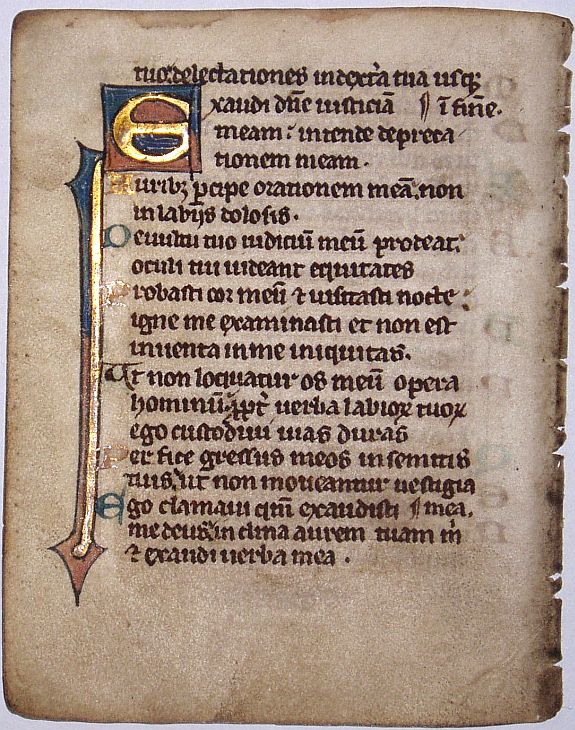 tuo⁊ delectationes in dext̃a tua usq₃
Exaudi dñe iusticiã ¶ ĩ finẽ.
meam : intende depreca
tionem meam .
Aurib₃ ꝑcipe orationem meã, non
in labijs dolosis .
De uultu tuo iudiciũ meũ prodeat:
oculi tui uideant equitates
Probasti cor meũ ⁊ uisitasti nocte :
igne me examinasti et non est
inuenta in me iniquitas .
Ut non loquatur os meũ opera
hominũ: ꝓpt̃ uerba labioꝝ tuoꝝ
ego custodiui uias duras
Per fice gressus meos in semitis
tuis, ut non moueantur uestigia
Ego clamaui qm̃ exaudisti ¶ mea.
me deus: in clina aurem tuam m̃
⁊ exaudi uerba mea .